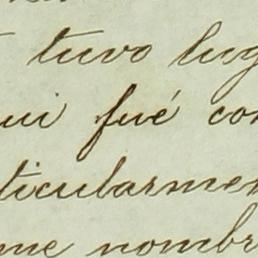 tuvo lug
ui fué con
ticularmen
me nombr